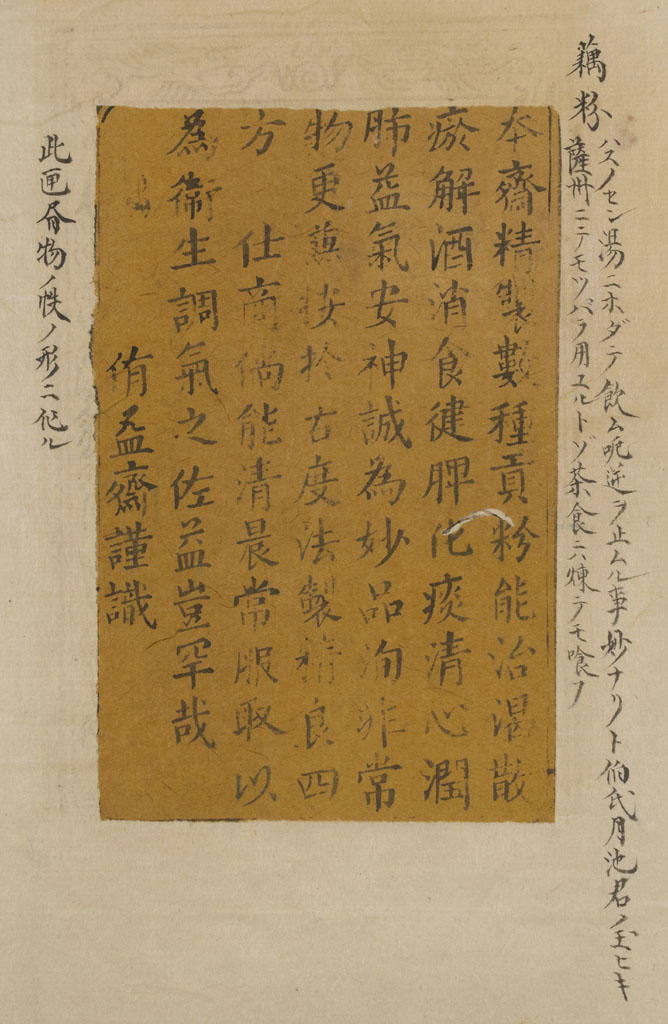 藕粉
ハスノセン湯ニホダテ飲ム呃逆ヲ止ムル事妙ナリト伯氏月池君ノ玉ヒキ
薩州ニテモツバラ用ユルトゾ茶食ニハ煉テモ喰フ
本齋精製數種貢粉能治渴散
瘀解酒消食健脾化痰清心潤
肺益氣安神誠為妙品洵非常
物更蒸按於古度法製精良四
方 仕商倘能清晨常服取以
為衛生調氣之佐益豈罕哉
侑益齋謹識
此匣唇物ノ帙ノ形ニ化ル